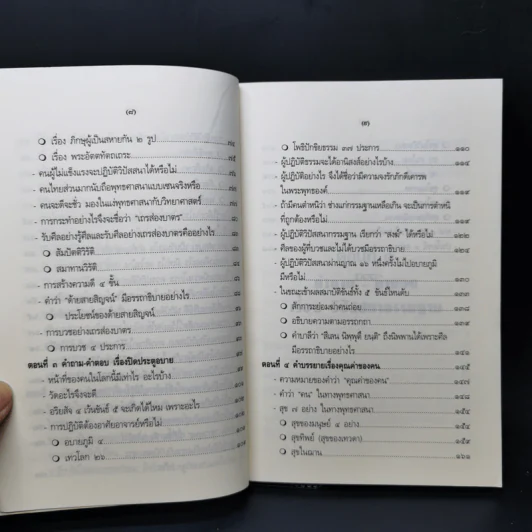 (๘)
เรื่อง ภิกษุผู้เป็นสหายกัน ๒ รูป
เรื่อง พระอัตตทัตถเถระ
- คนผู้ไม่แข็งแรงจะปฏิบัติวิปัสสนาได้หรือไม่
- คนไทยส่วนมากนับถือพุทธศาสนาแบบเซนจริงหรือ
- คนจะดีจะชั่ว มองในแง่พุทธศาสนากับวิทยาศาสตร์
- การกระทำอย่างไรจึงจะชื่อว่า "เถรส่องบาตร"
- รับศีลอย่างรู้ศีลและรับศีลอย่างเถรส่องบาตรคืออย่างไร
สัมปัตตวิรัติ
สมาทานวิรัติ
- การสร้างความดี ๔ ขั้น
- คำว่า "ด้ายสายสิญจน์" มีอรรถาธิบายอย่างไร
ประโยชน์ของด้ายสายสิญจน์
- การบวชอย่างเถรส่องบาตร
การบวช ๔ ประการ
ตอนที่ ๓ คำถาม-คำตอบ เรื่องปิดประตูอบาย
- หน้าที่ของคนในโลกนี้มีเท่าไร อะไรบ้าง
- วัดอะไรจึงจะดี
- อริยสัจ ๔ เว้นขันธ์ ๕ จะเกิดได้ไหม เพราะอะไร
- การปฏิบัติต้องอาศัยอาจารย์หรือไม่
อบายภูมิ ๔
เทวโลก ๒๖
(๙)
โพธิปักขิยธรรม ๓๗ ประการ ๑๑๐
- ผู้ปฏิบัติธรรมจะได้อานิสงส์อย่างไรบ้าง
- ผู้ปฏิบัติอย่างไร จึงได้ชื่อว่ามีความจงรักภักดีเคารพ
ในพระพุทธองค์
- ถ้ามีคนตำหนิว่า ช่างแก่กรรมฐานเหลือเกิน จะเป็นการตำหนิ
ที่ถูกต้องหรือไม่
- ผู้ปฏิบัติวิปัสสนากรรมฐาน เรียกว่า "สงฆ์" ได้หรือไม่ ๑๒๒
- ศีลของผู้ที่บวชและไม่ได้บวชมีอรรถาธิบาย
- ผู้ปฏิบัติวิปัสสนาผ่านญาณ ๑๖ หนึ่งครั้งไม่ไปอบายภูมิ
มีหรือไม่
- ในขณะเข้าผลสมาบัติขันธ์ทั้ง ๕ ขันธ์ไหนดับ
สักการะย่อมฆ่าคนถ่อย
อธิบายความตามอรรถกถา
- คำบาลีว่า "สีเลน นิพฺพุตึ ยนฺติ" ถึงนิพพานได้เพราะศีล
มีอรรถาธิบายอย่างไร
ตอนที่ ๔ คำบรรยายเรื่องคุณค่าของคน ๑๔๕
- ความหมายของคำว่า "คุณค่าของคน"
- คำว่า "คน" ในทางพุทธศาสนา
- สุข ๗ อย่าง ในทางพุทธศาสนา
สุขของมนุษย์ ๔ อย่าง
สุขทิพย์ (สุขของเทวดา)
สุขในฌาน ๑๖๑